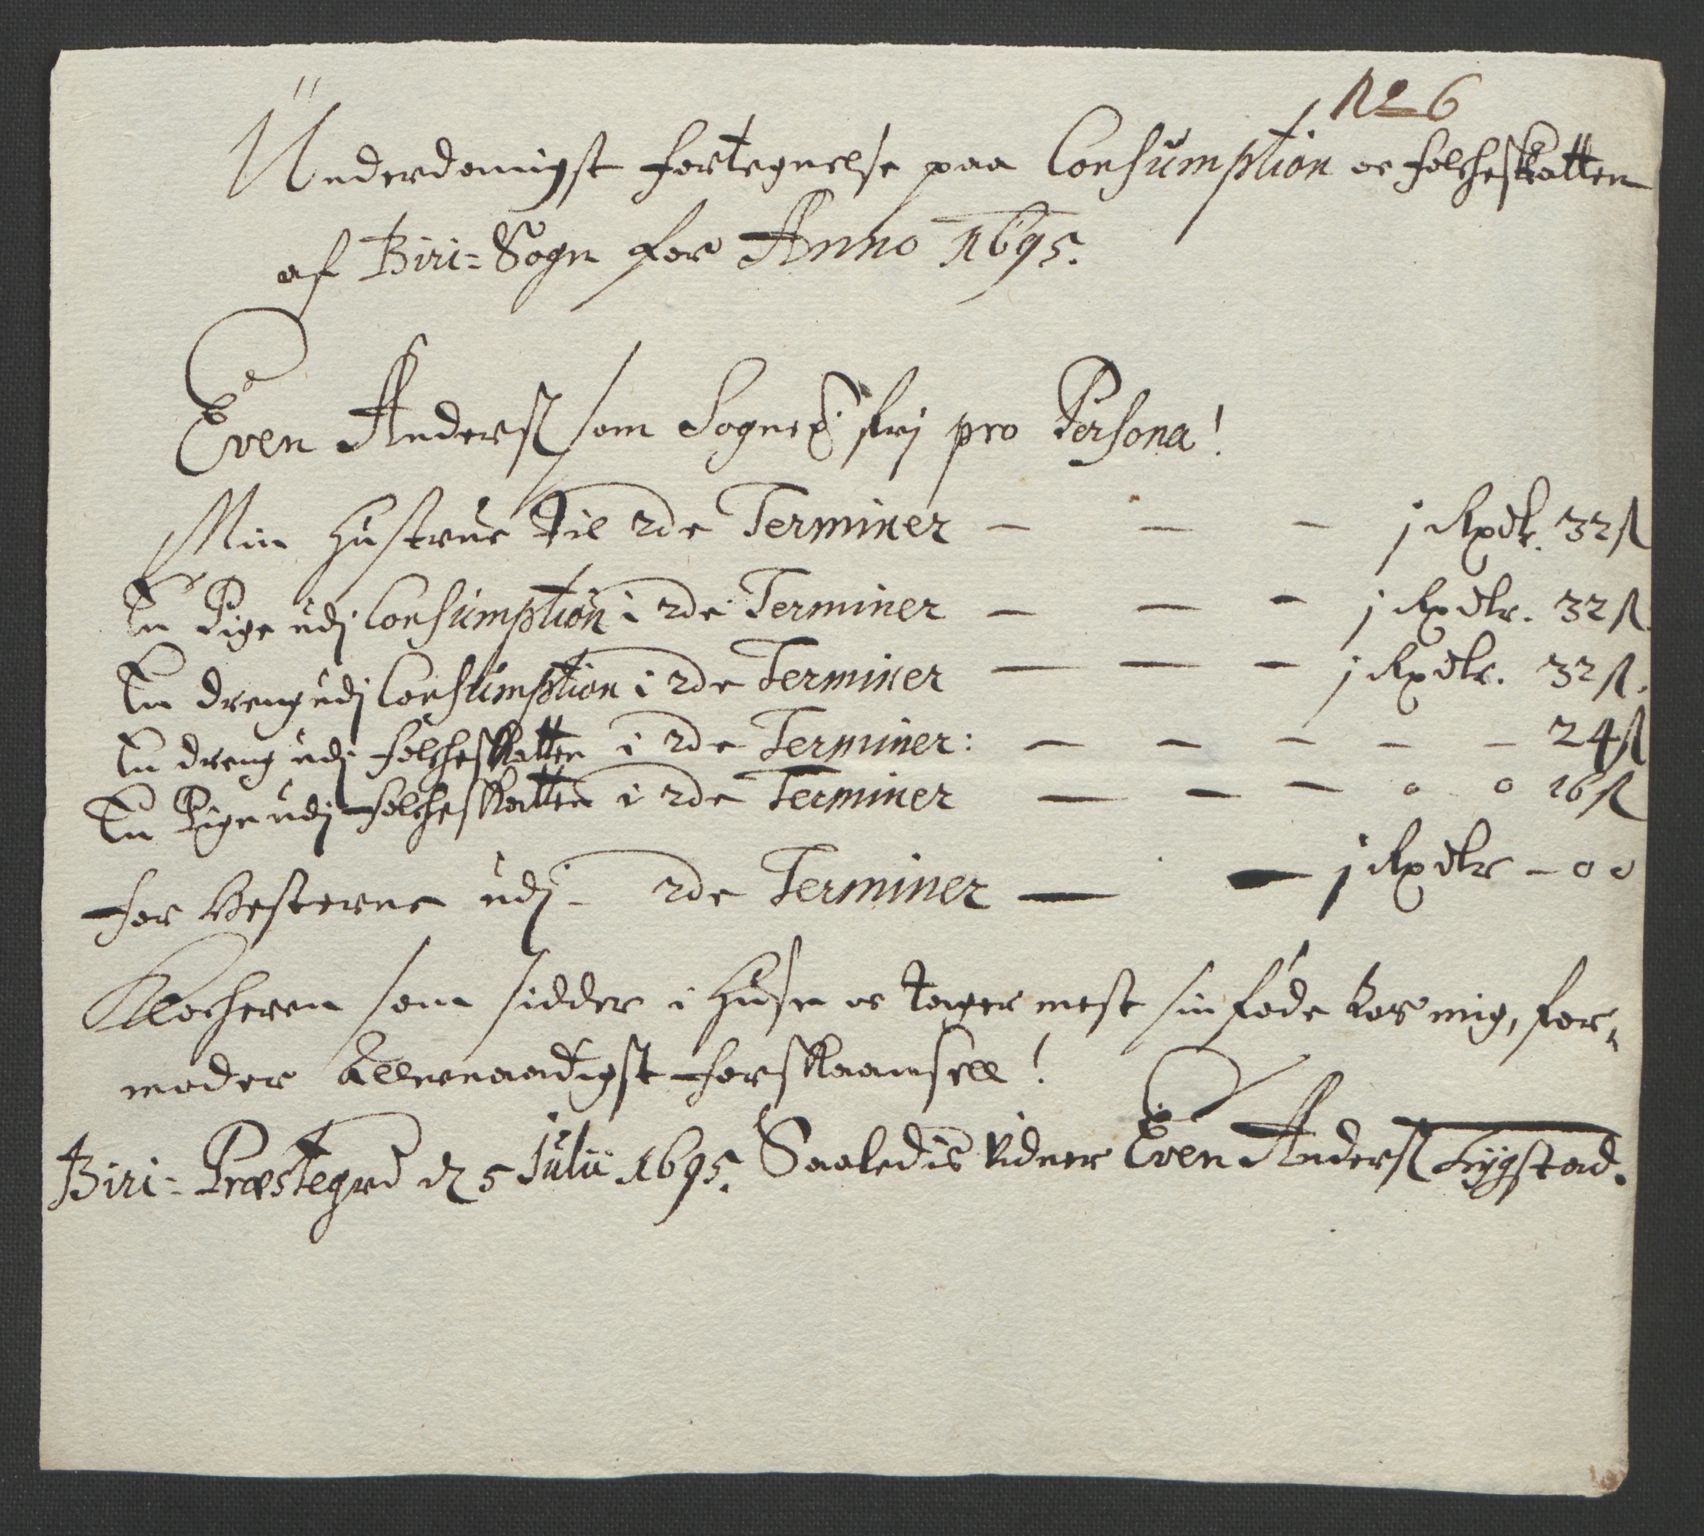 No 6
Underdanigst fortegnelse paa Consumption oc folcheskatten
af Biri= Sogn for Anno 1695.
Even Anderß som Sogne fri pro Persona!
Min Hustrue til 2de Terminer — — — 1 Rxdlr. 32ß
En Pige udj Consumption i 2de Terminer — — — 1 Rxdlr. 32ß
En dreng udj Consumption i 2de Terminer — — — 1 Rxdlr. 32ß.
En dreng udj folcheskatten i 2de Terminer: — — — — — 24ß
En Pige udj folcheskatten i 2de Terminer — — — 0 0 16ß
for Hesterne udj — 2de Terminer — — 1 Rxdlr — 00
Klocheren som sidder i Huse oc tager mest sin føde hos mig, for=
moder allernaadigst forskaansell!
Biri= Præstegrd d 5 Julii 1695. Saaledis vidner Even Anderß Lygstad.